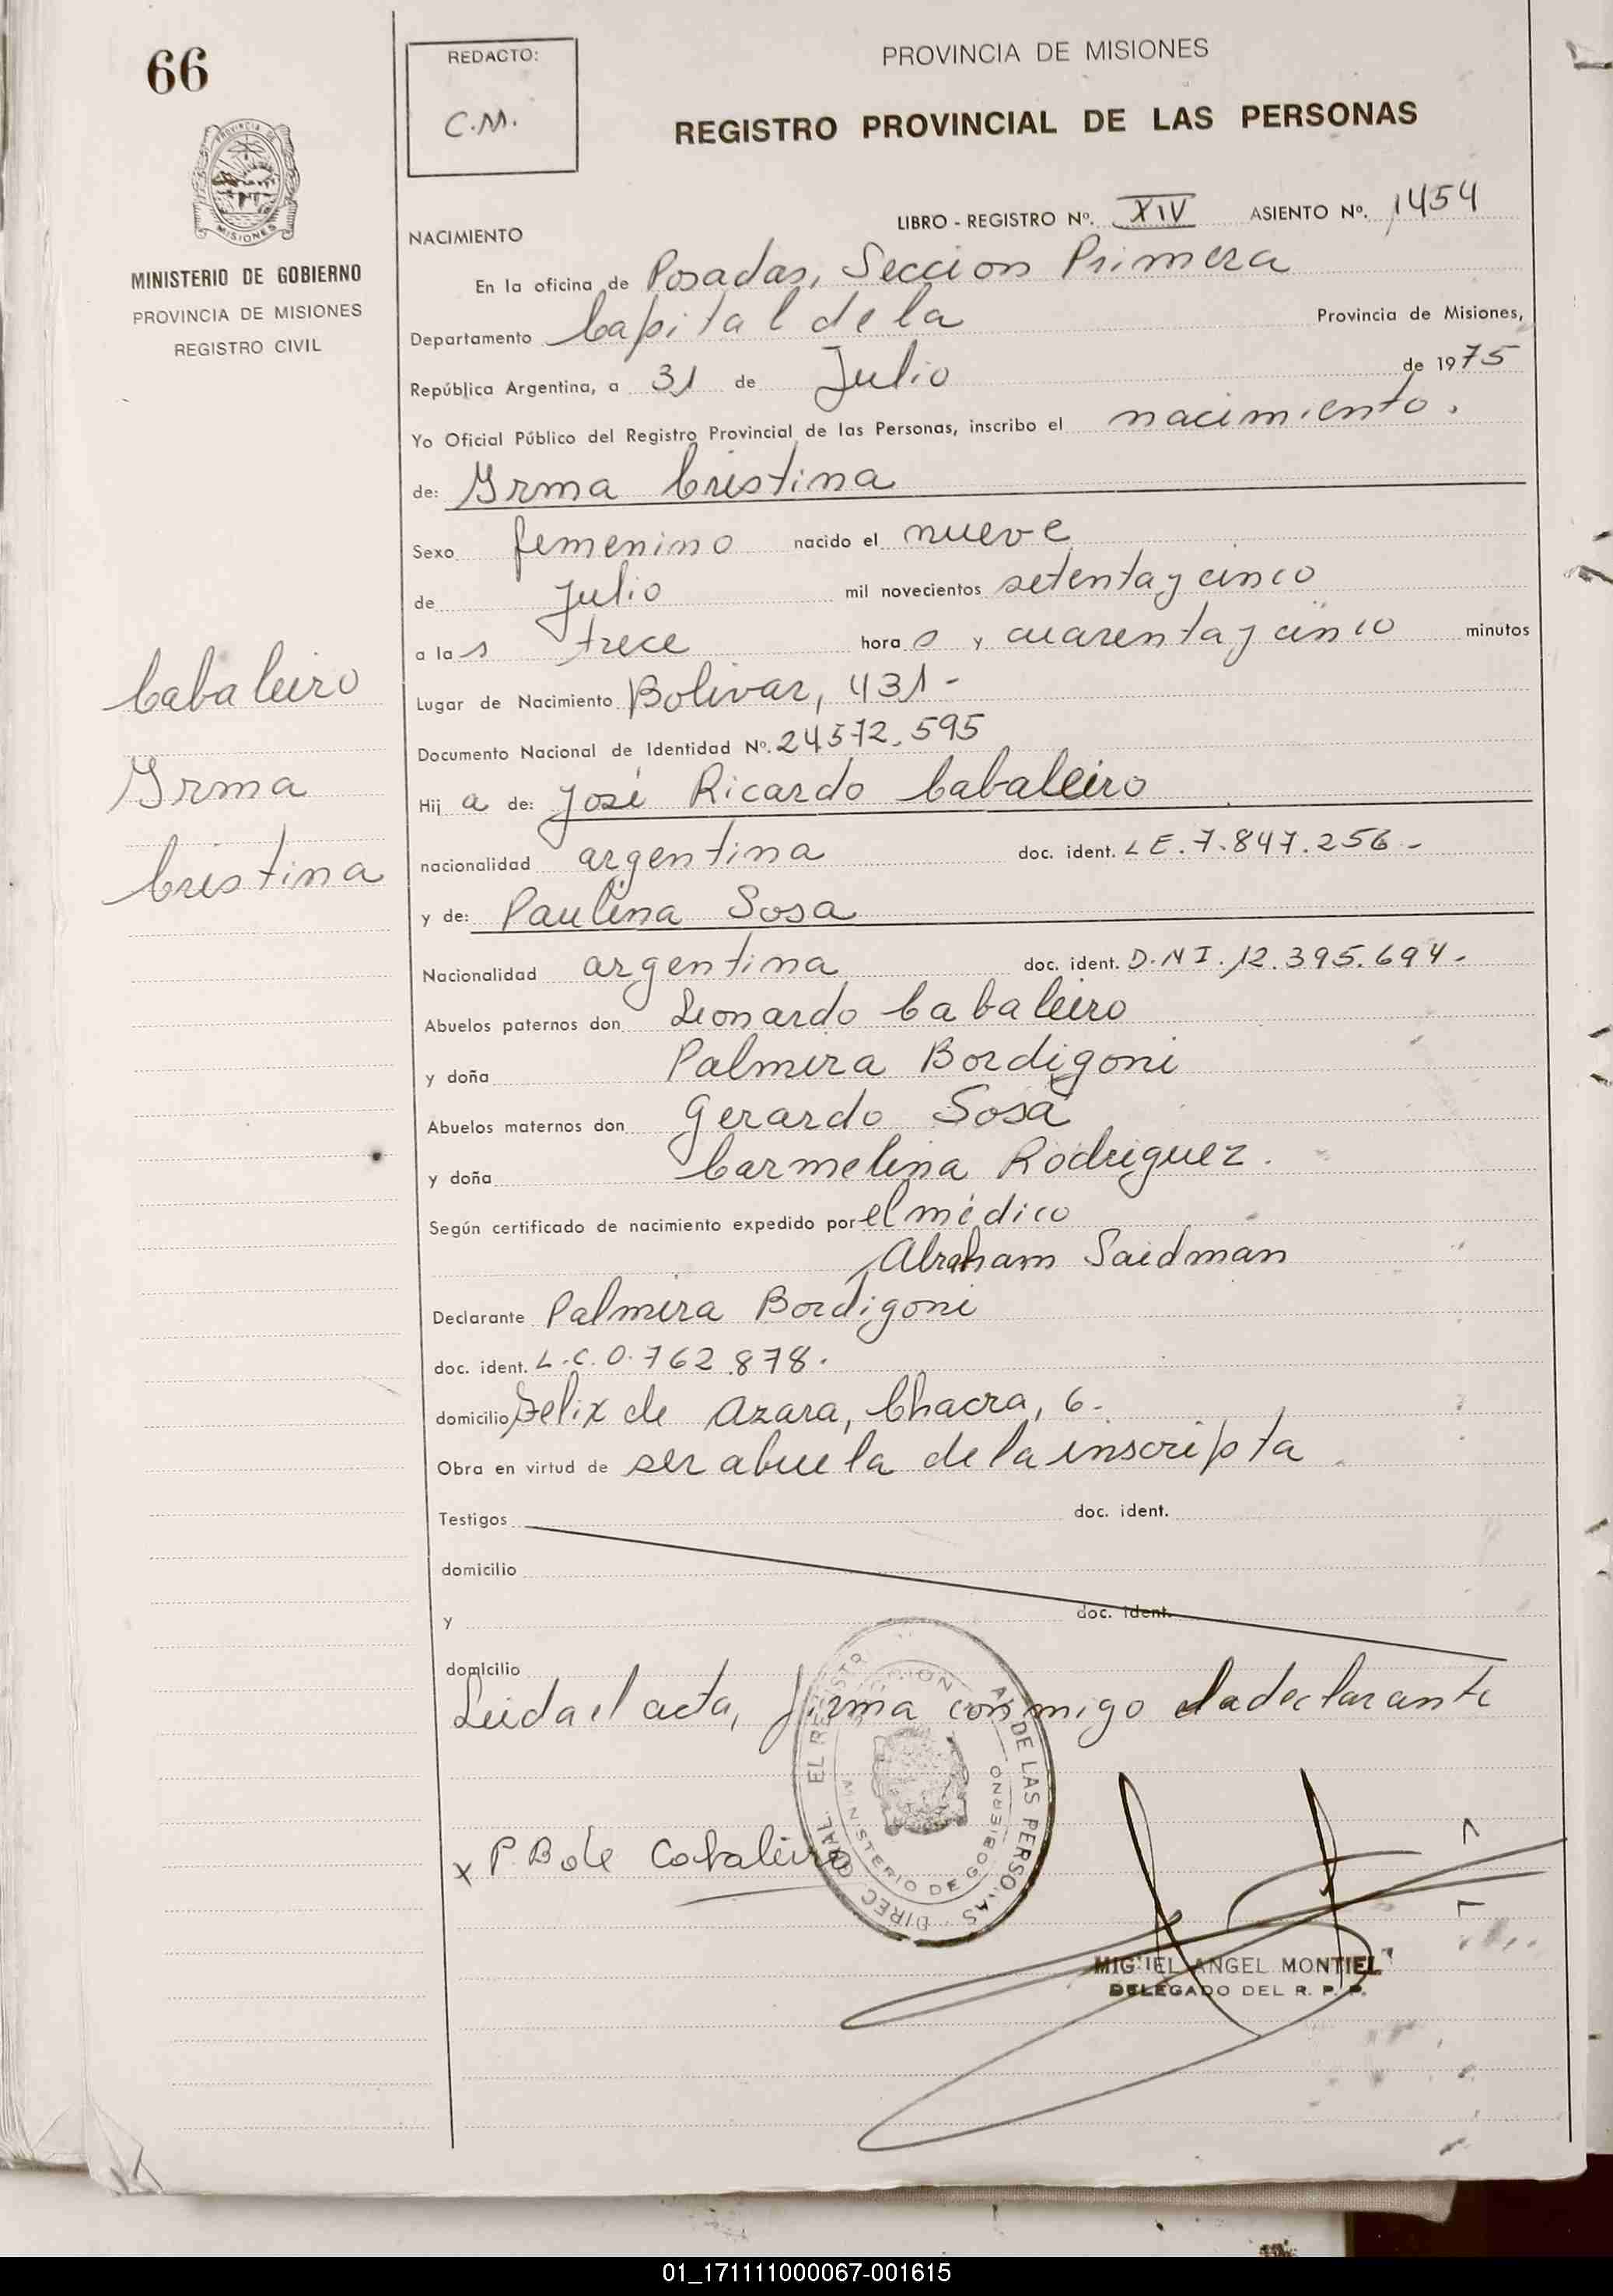 66
REDACTO:
C.M.
PROVINCIA DE MISIONES
REGISTRO PROVINCIAL DE LAS PERSONAS
PROVINCIA DE MISIONES
MINISTERIO DE GOBIERNO
PROVINCIA DE MISIONES
REGISTRO CIVIL
LIBRO - REGISTRO Nº. XIV ASIENTO Nº. 1454
NACIMIENTO
En la oficina de Posadas, Seccion Primera
Departamento Capital de la Provincia de Misiones,
República Argentina, a 31 de Julio de 1975
Yo Oficial Público del Registro Provincial de las Personas, inscribo el nacimiento.
de: Irma Cristina
Sexo femenino nacido el nueve
de Julio mil novecientos setenta y cinco
a la s trece hora s y cuarenta y cinco minutos
Cabaleiro
Irma
Cristina
Lugar de Nacimiento Bolivar, 431-
Documento Nacional de Identidad Nº. 24572.595
Hij a de: José Ricardo Cabaleiro
nacionalidad argentina doc. ident. L E. 7.847.256-
y de: Paulina Sosa
Nacionalidad argentina doc. ident. D.N I. 12.395.694-
Abuelos paternos don Leonardo Cabaleiro
y doña Palmira Bordigoni
Abuelos maternos don Gerardo Sosa
y doña Carmelina Rodriguez.
Según certificado de nacimiento expedido por el médico
Abraham Saidman
Declarante Palmira Bordigoni
doc. ident. L.C. 0.762.878.
domicilio Felix de Azara, Chacra, 6.
Obra en virtud de ser abuela de la inscripta
Testigos doc. ident.
domicilio
y doc. ident.
domicilio
Leida el acta, firma conmigo la declarante
x P. B de Cabaleiro
MINISTERIO DE GOBIERNO
DE LAS PERSONAS
MIGUEL ANGEL MONTIEL
DELEGADO DEL R. P. P.
01_171111000067-001615